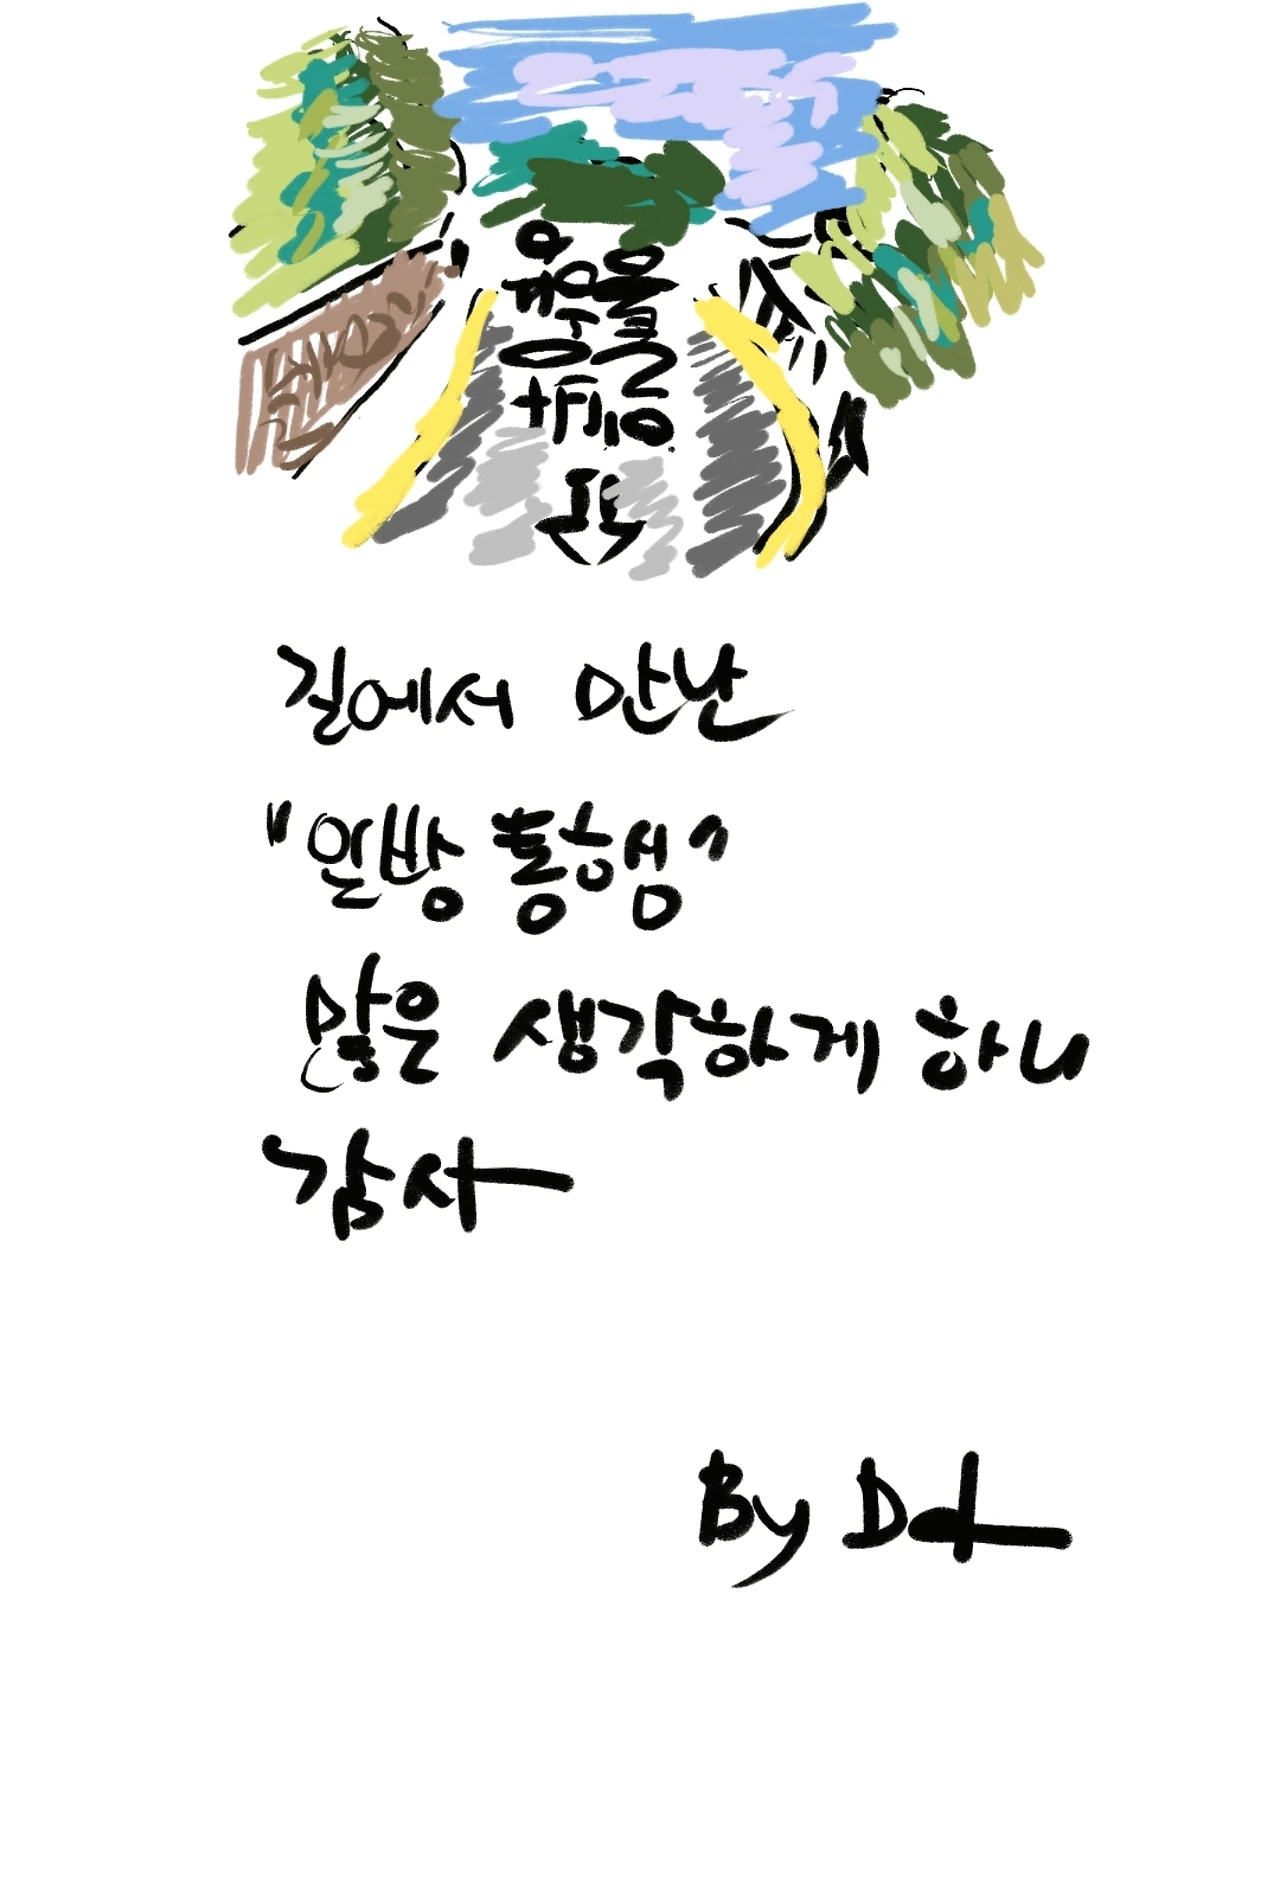 길에서 만난
"일방 통행"
많은 생각하게 하니
감사
By Dd